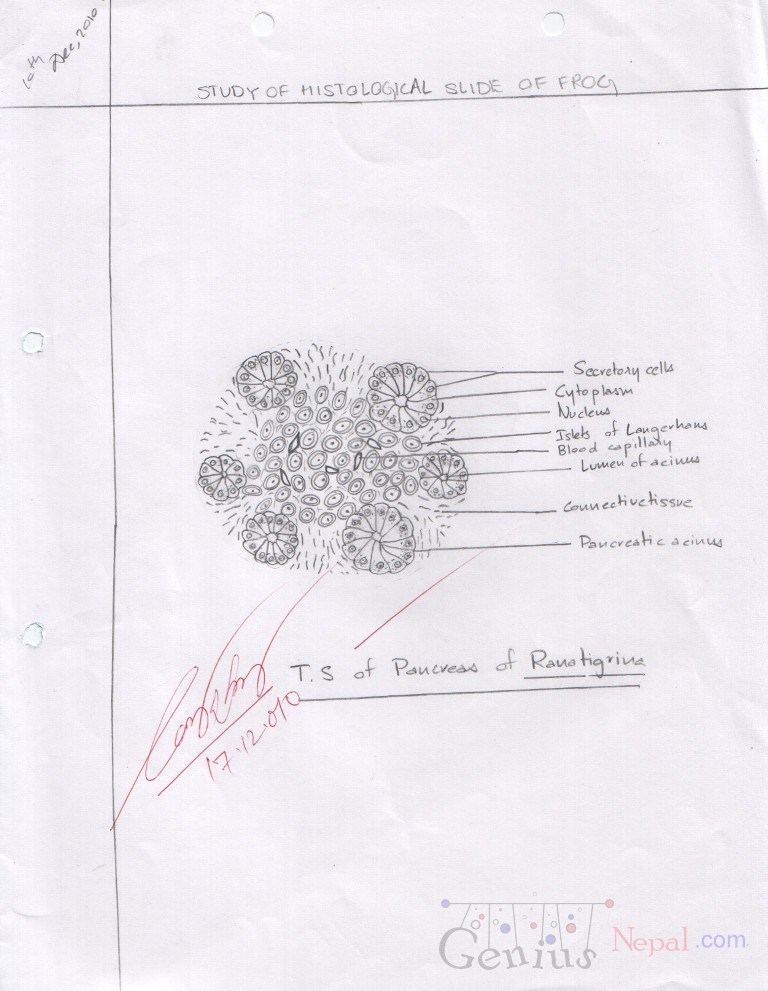 10th
Dec, 2010
STUDY OF HISTOLOGICAL SLIDE OF FROG
Secretory cells
Cytoplasm
Nucleus
Islets of Langerhans
Blood capillary
Lumen of acinus
Connective tissue
Pancreatic acinus
T.S of Pancreas of Rana tigrina
17.12.010
Genius Nepal.com